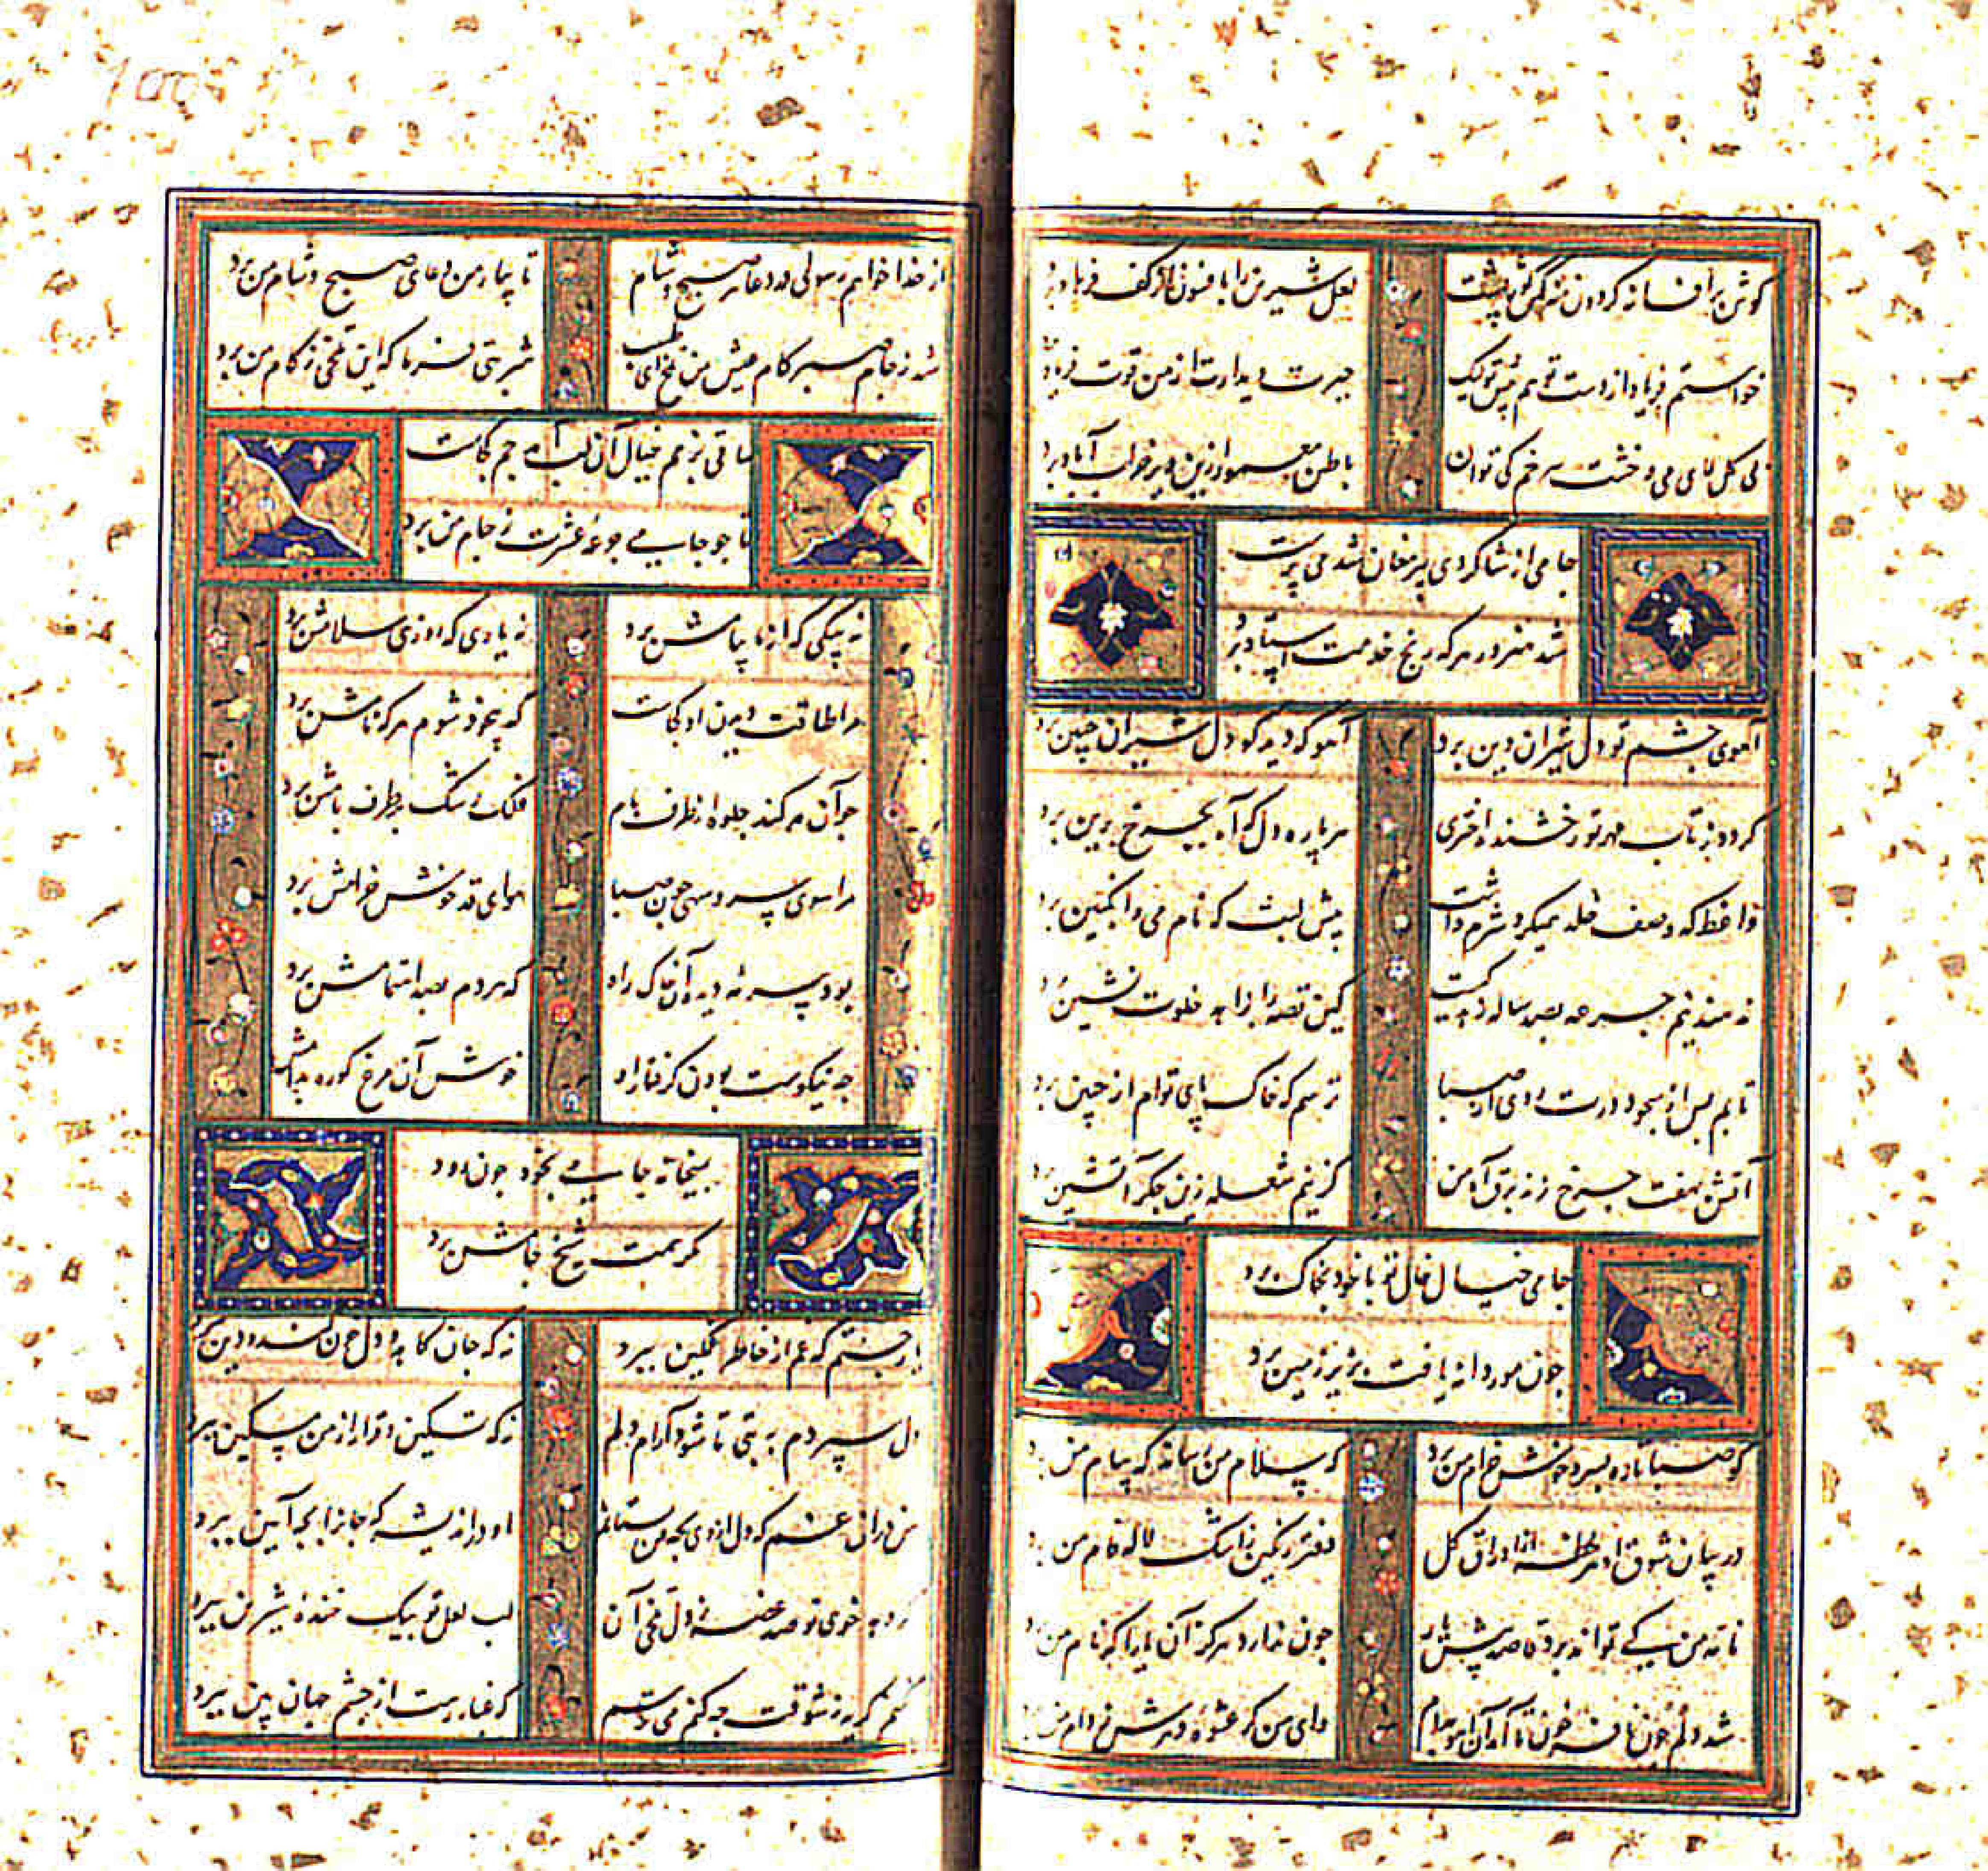 گوش بر افسانه گردون منه کین گوژپشت لعل شیرین را بافسون از کف فرهاد برد
خواستم فریاد از دست تو هم پیش تو لیک حیرت دیدارت از من قوت فریاد برد
بی گل لای می و خشت سر خم کی توان باطن معمور ازین دیر خراب آباد برد
جامی از شاگردی پیر مغان شد می پرست
شد هنرور هر که رنج خدمت استاد برد
آهوی چشم تو دل شیران دین برد آهو که دید کو دل شیران چنین برد
گردد ز تاب مهر تو رخشنده اختری هر پاره دل که آه بچرخ برین برد
واعظ که وصف خله میکرد شرم داشت پیش لبت که نام می و انگبین برد
نه مفتیم جرعه بصد ساله زهد کیست کین قصه را بزاهد خلوت نشین برد
تابم پس از سجود درت روی از صبا ترسم که خاک پای توام از جبین برد
آتش بهفت چرخ زند برق آه من گر نیم شعله زین جگر آتشین برد
جامی خیال خال تو با خود بخاک برد
چون مور دانه یافت بزیر زمین برد
کو صبا تا ره بسرو خوش خرام من برد که سلام من رساند گه پیام من برد
در بیان شوق او هر لحظه از اوراق گل دفتر رنگین ز اشک لاله فام من برد
نامه من کی تواند برد قاصد پیش یار چون ندارد هرگز آن یارا که نام من برد
شد دلم خون نافه چون تا آمد آن آهو بدام وای من گر عشوه دهرش ز دام من برد
از خدا خواهم رسولی در دعا هر صبح و شام تا بیار من دعای صبح و شام من برد
شد ز جام صبر کام عیش من تلخ ای طبیب شربتی فرما که این تلخی ز کام من برد
ساقی بزمم خیال آن لب آمد جم کجاست
تا چو جامی جرعه عشرت ز جام من برد
نه پیکی که از ما پیامش برد نه یادی که از وی سلامش برد
مرا طاقت دیدن او کجاست که بیخود شوم هر که نامش برد
چو آن مه کند جلوه از طرف بام فلک رشک بر طرف بامش برد
مرا سوی سرو سهی چون صبا هوای قد خوش خرامش برد
بود سرمه دیده آن خاک راه که مردم بصد اهتمامش برد
چه نیکوست بودن گرفتار او خوش آن مرغ کو ره بدامش برد
بمیخانه جامی بخود چون رود
مگر همت شیخ جامش برد
یار جستم که غم از خاطر غمگین ببرد نه که جان کاهد و دل خون کند و دین ببرد
دل سپردم به بتی تا شود آرام دلم نه که تسکین و قرار از من مسکین ببرد
من در آن غم که دل از وی بچه فن بستانم او در اندیشه که جانرا بچه آیین ببرد
گر دهد خوی تو صد غصه ز دل تلخی آن لب لعل تو بیک خنده شیرین ببرد
گفتم گریه ز شوقت چه کنم می ترسم که غبار رهت از چشم جهان بین ببرد